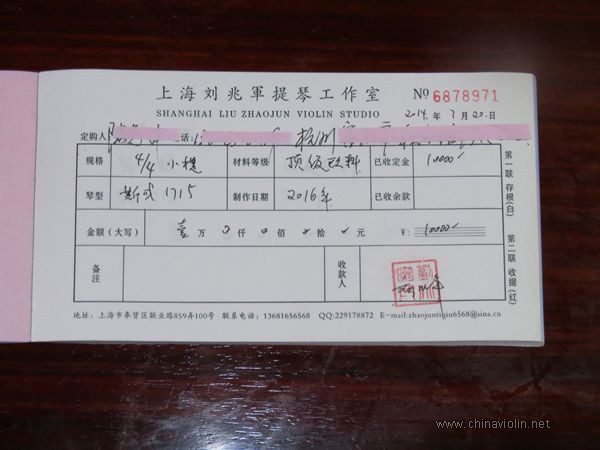 上海刘兆軍提琴工作室 NO 6878971
SHANGHAI LIU ZHAOJUN VIOLIN STUDIO 2014.年7月20.日
定购人 话: 杭州
规格 4/4 小提 材料等级 顶级欧料 已收定金 10000
琴型 斯式 1715 制作日期 2016年 已收余款
金额(大写) 壹万0仟0佰0拾 元 ¥: 10000
备注 收款人
地址:上海市奉贤区联业路859弄100号 联系电话:13681656568 QQ:229178872 E-mail:zhaojuntiqin6568@sina.cn
第一联 存根(白) 第二联 收据(红)
www.chinaviolin.net